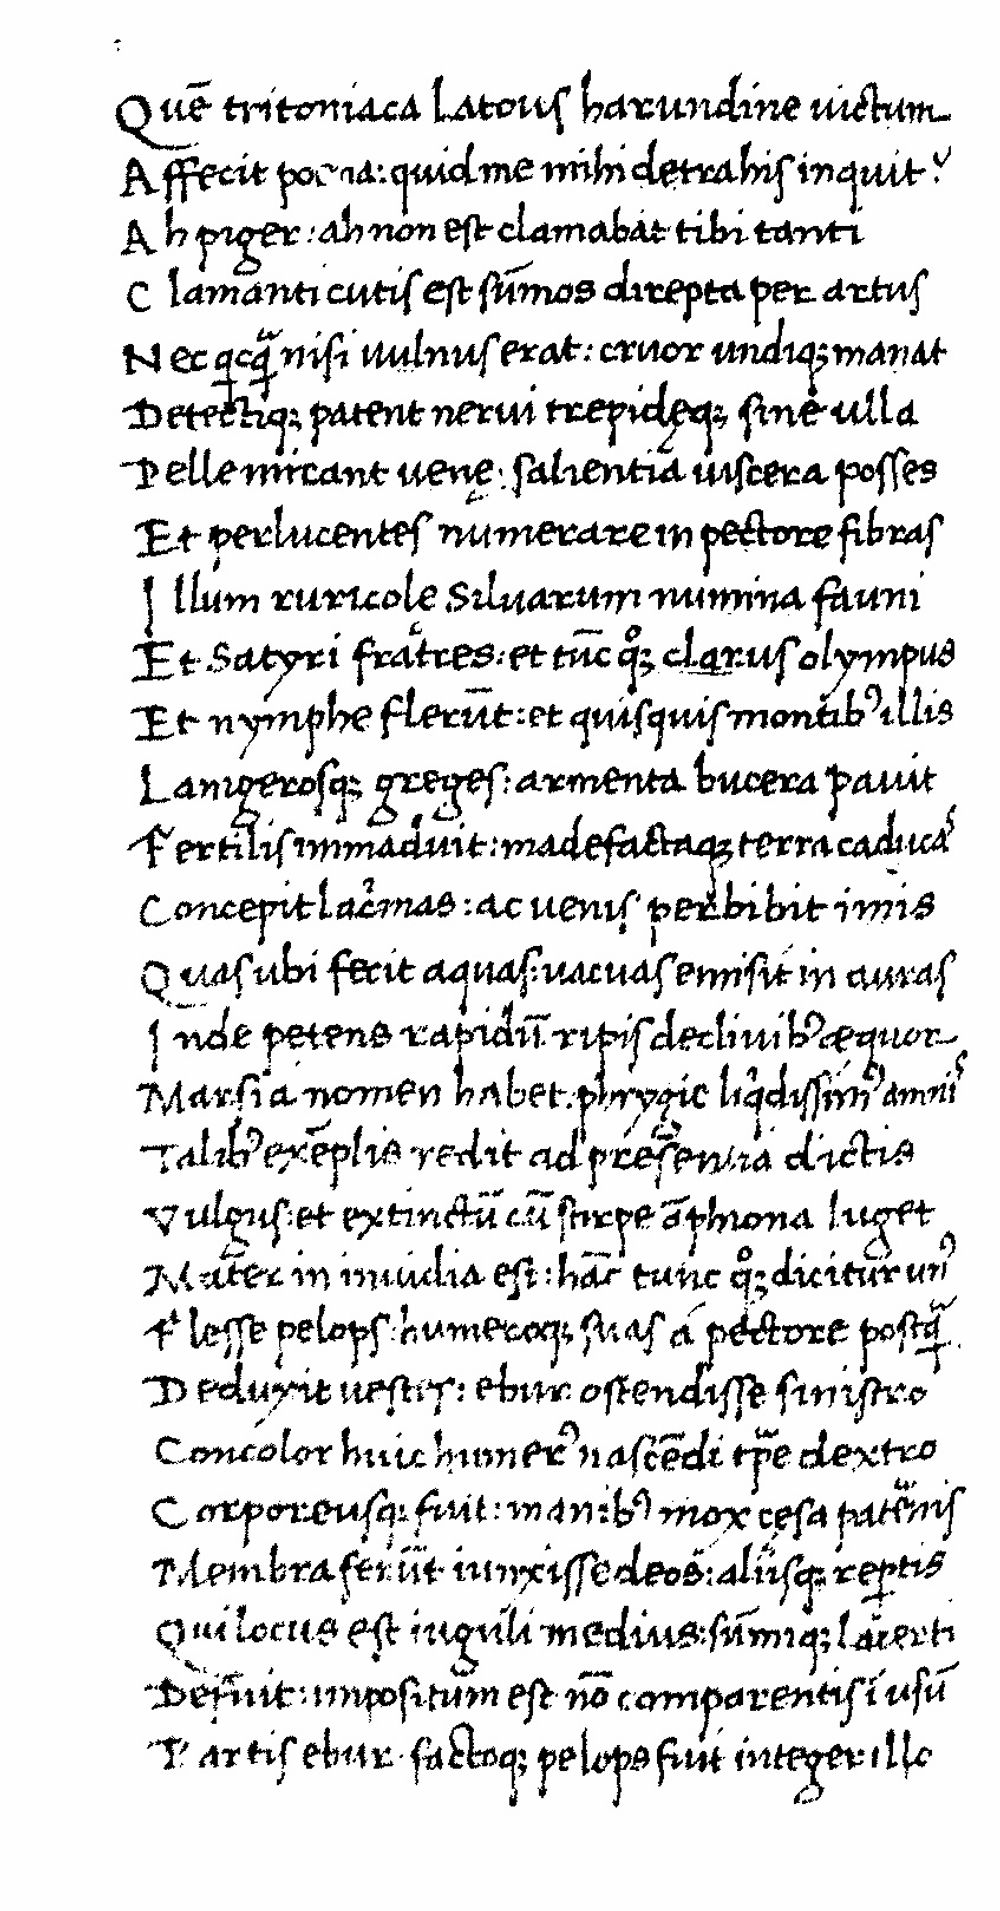 Quē tritoniaca Latous harundine uictum
Affecit poena: quid me mihi detrahis inquit?
Ah piger: ah non est clamabat tibi tanti
Clamanti cutis est sūmos direpta per artus
Nec qcq̃ nisi uulnus erat: cruor undiqꝫ manat
Detectiqꝫ patent nerui trepidęqꝫ sine ulla
Pelle micant uenę: salientia uiscera posses
Et perlucentes numerare in pectore fibras
Illum ruricole Siluarum numina fauni
Et Satyri fratres: et tūc qͦꝫ clarus olympus
Et nymphe flerūt: et quisquis montibꝰ illis
Lanigerosqꝫ greges: armenta bucera pauit
Fertilis immaduit: madefactaqꝫ terra caducas
Concepit lacͥmas: ac uenis perbibit imis
Quas ubi fecit aquas: uacuas emisit in auras
Inde petens rapidū ripis decliuibꝰ æquor
Marsia nomen habet. phrygie liqͥdissimꝰ amnis
Talibꝰ exēplis redit ad presentia dictis
Vulgus: et extinctū cū stirpe āphiona luget
Mater in inuidia est: hāc tunc qͦꝫ dicitur unꝰ
Flesse pelops: humeroqꝫ suas á pectore postq̃
Deduxit uestes: ebur ostendisse sinistro
Concolor huic humerꝰ nascēdi tp̃e dextro
Corporeusqꝫ fuit: manibꝰ mox cęsa paternis
Membra ferūt iunxisse deos: aliisqꝫ reꝑtis
Qui locus est iuguli medius: sūmiqꝫ lacerti
Defuit: impositum est nō comparentis ī usū
Partis ebur factoqꝫ pelops fuit integer illo